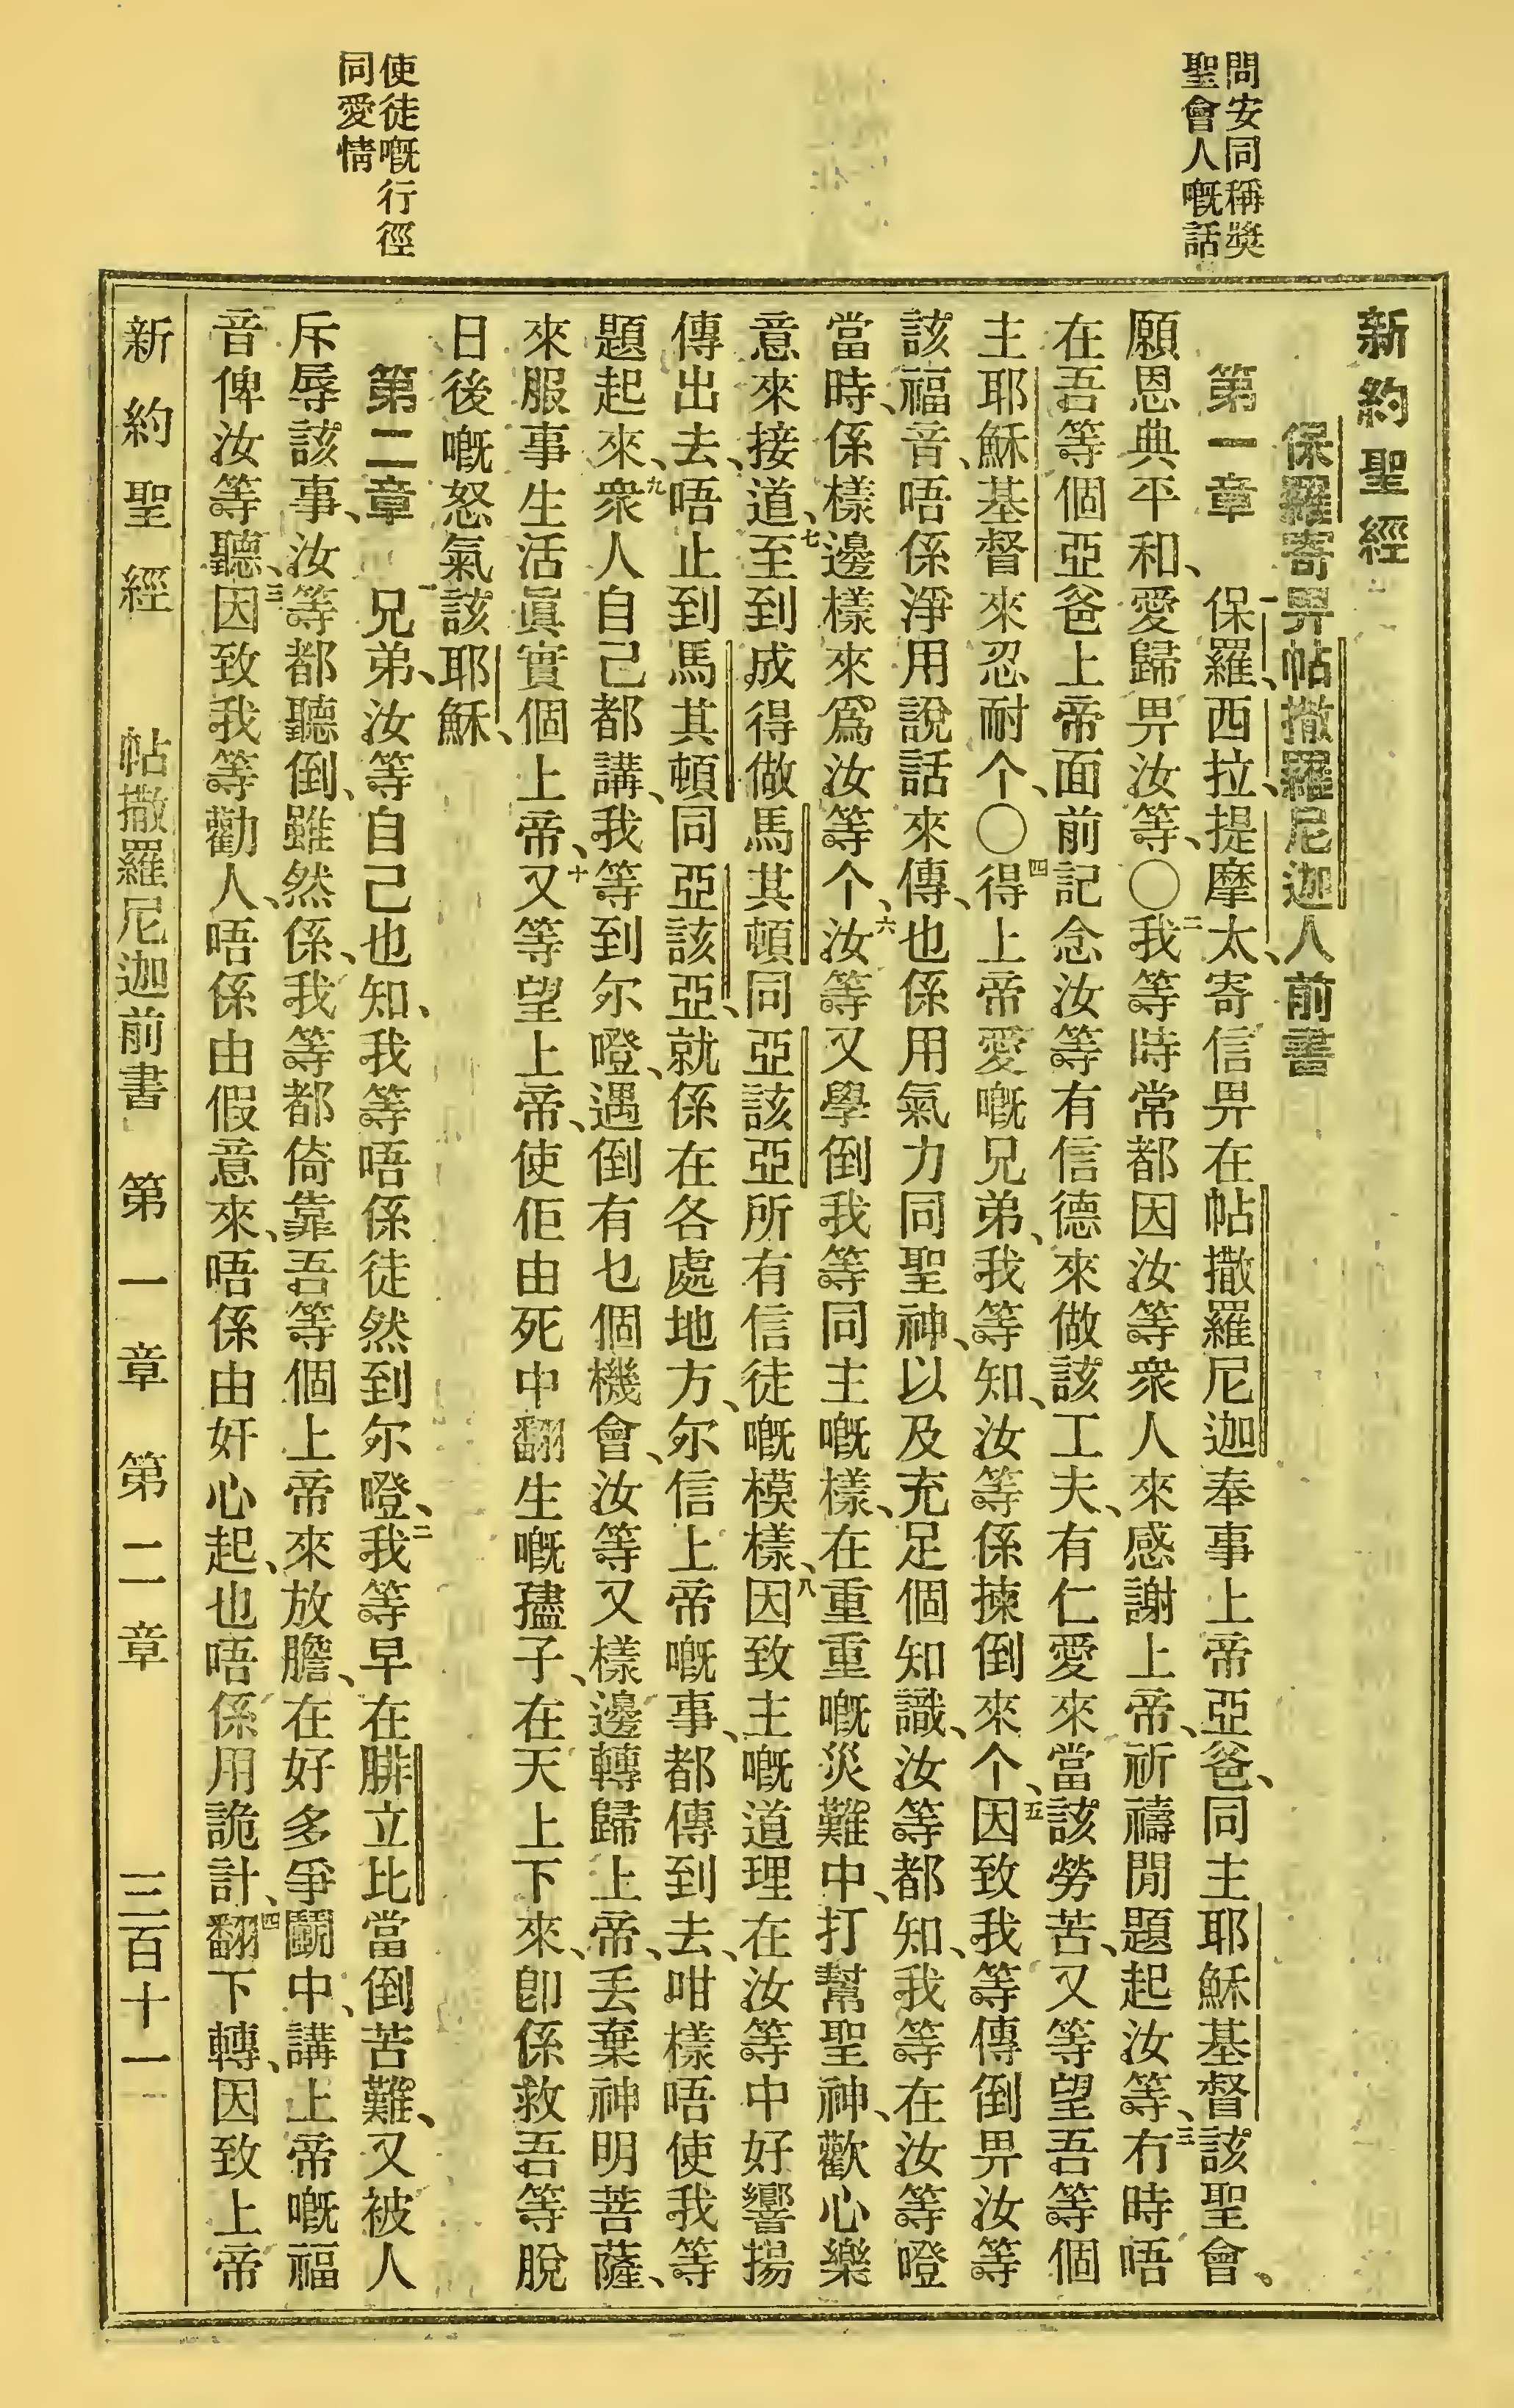 問安同稱奬
聖會人嘅話
使徒嘅行徑
同愛情
新約聖經
保羅寄畀帖撒羅尼迦人前書
第一章 一保羅、西拉、提摩太、寄信畀在帖撒羅尼迦奉事上帝亞爸、同主耶穌基督該聖會、
願恩典平和、愛歸畀汝等、〇二我等時常都因汝等衆人來感謝上帝、祈禱閒題起汝等、三冇時唔
在吾等個亞爸上帝面前記念汝等有信德來做該工夫、有仁愛來當該勞苦、又等望吾等個
主耶穌基督來忍耐个、〇四得上帝愛嘅兄弟、我等知、汝等係揀倒來个、五因致我等傳倒畀汝等
該福音、唔係淨用說話來傳、也係用氣力同聖神、以及充足個知識、汝等都知、我等在汝等噔
當時、係樣邊樣來爲汝等个、六汝等又學倒我等同主嘅樣、在重重嘅災難中、打幫聖神、歡心樂
意來接道、七至到成得做馬其頓同亞該亞所有信徒嘅模樣、八因致主嘅道理在汝等中好響揚
傳出去、唔止到馬其頓同亞該亞、就係在各處地方、尔信上帝嘅事、都傳到去、咁樣唔使我等
題起來、九衆人自己都講、我等到尔噔、遇倒有乜個機會、汝等又樣邊轉歸上帝、丟棄神明菩薩、
來服事生活眞實個上帝、十又等望上帝、使佢由死中翻生嘅孻子、在天上下來、卽係救吾等脫
日後嘅怒氣該耶穌、
第二章 一兄弟、汝等自己也知、我等唔係徒然到尔噔、二我等早在腓立比當倒苦難、又被人
斥辱該事、汝等都聽倒、雖然係、我等都倚靠吾等個上帝來放膽、在好多爭鬬中、講上帝嘅福
音俾汝等聽、三因致我等勸人、唔係由假意來、唔係由奸心起、也唔係用詭計、四翻下轉、因致上帝
新約聖經 帖撒羅尼迦前書 第一章 第二章 三百十一